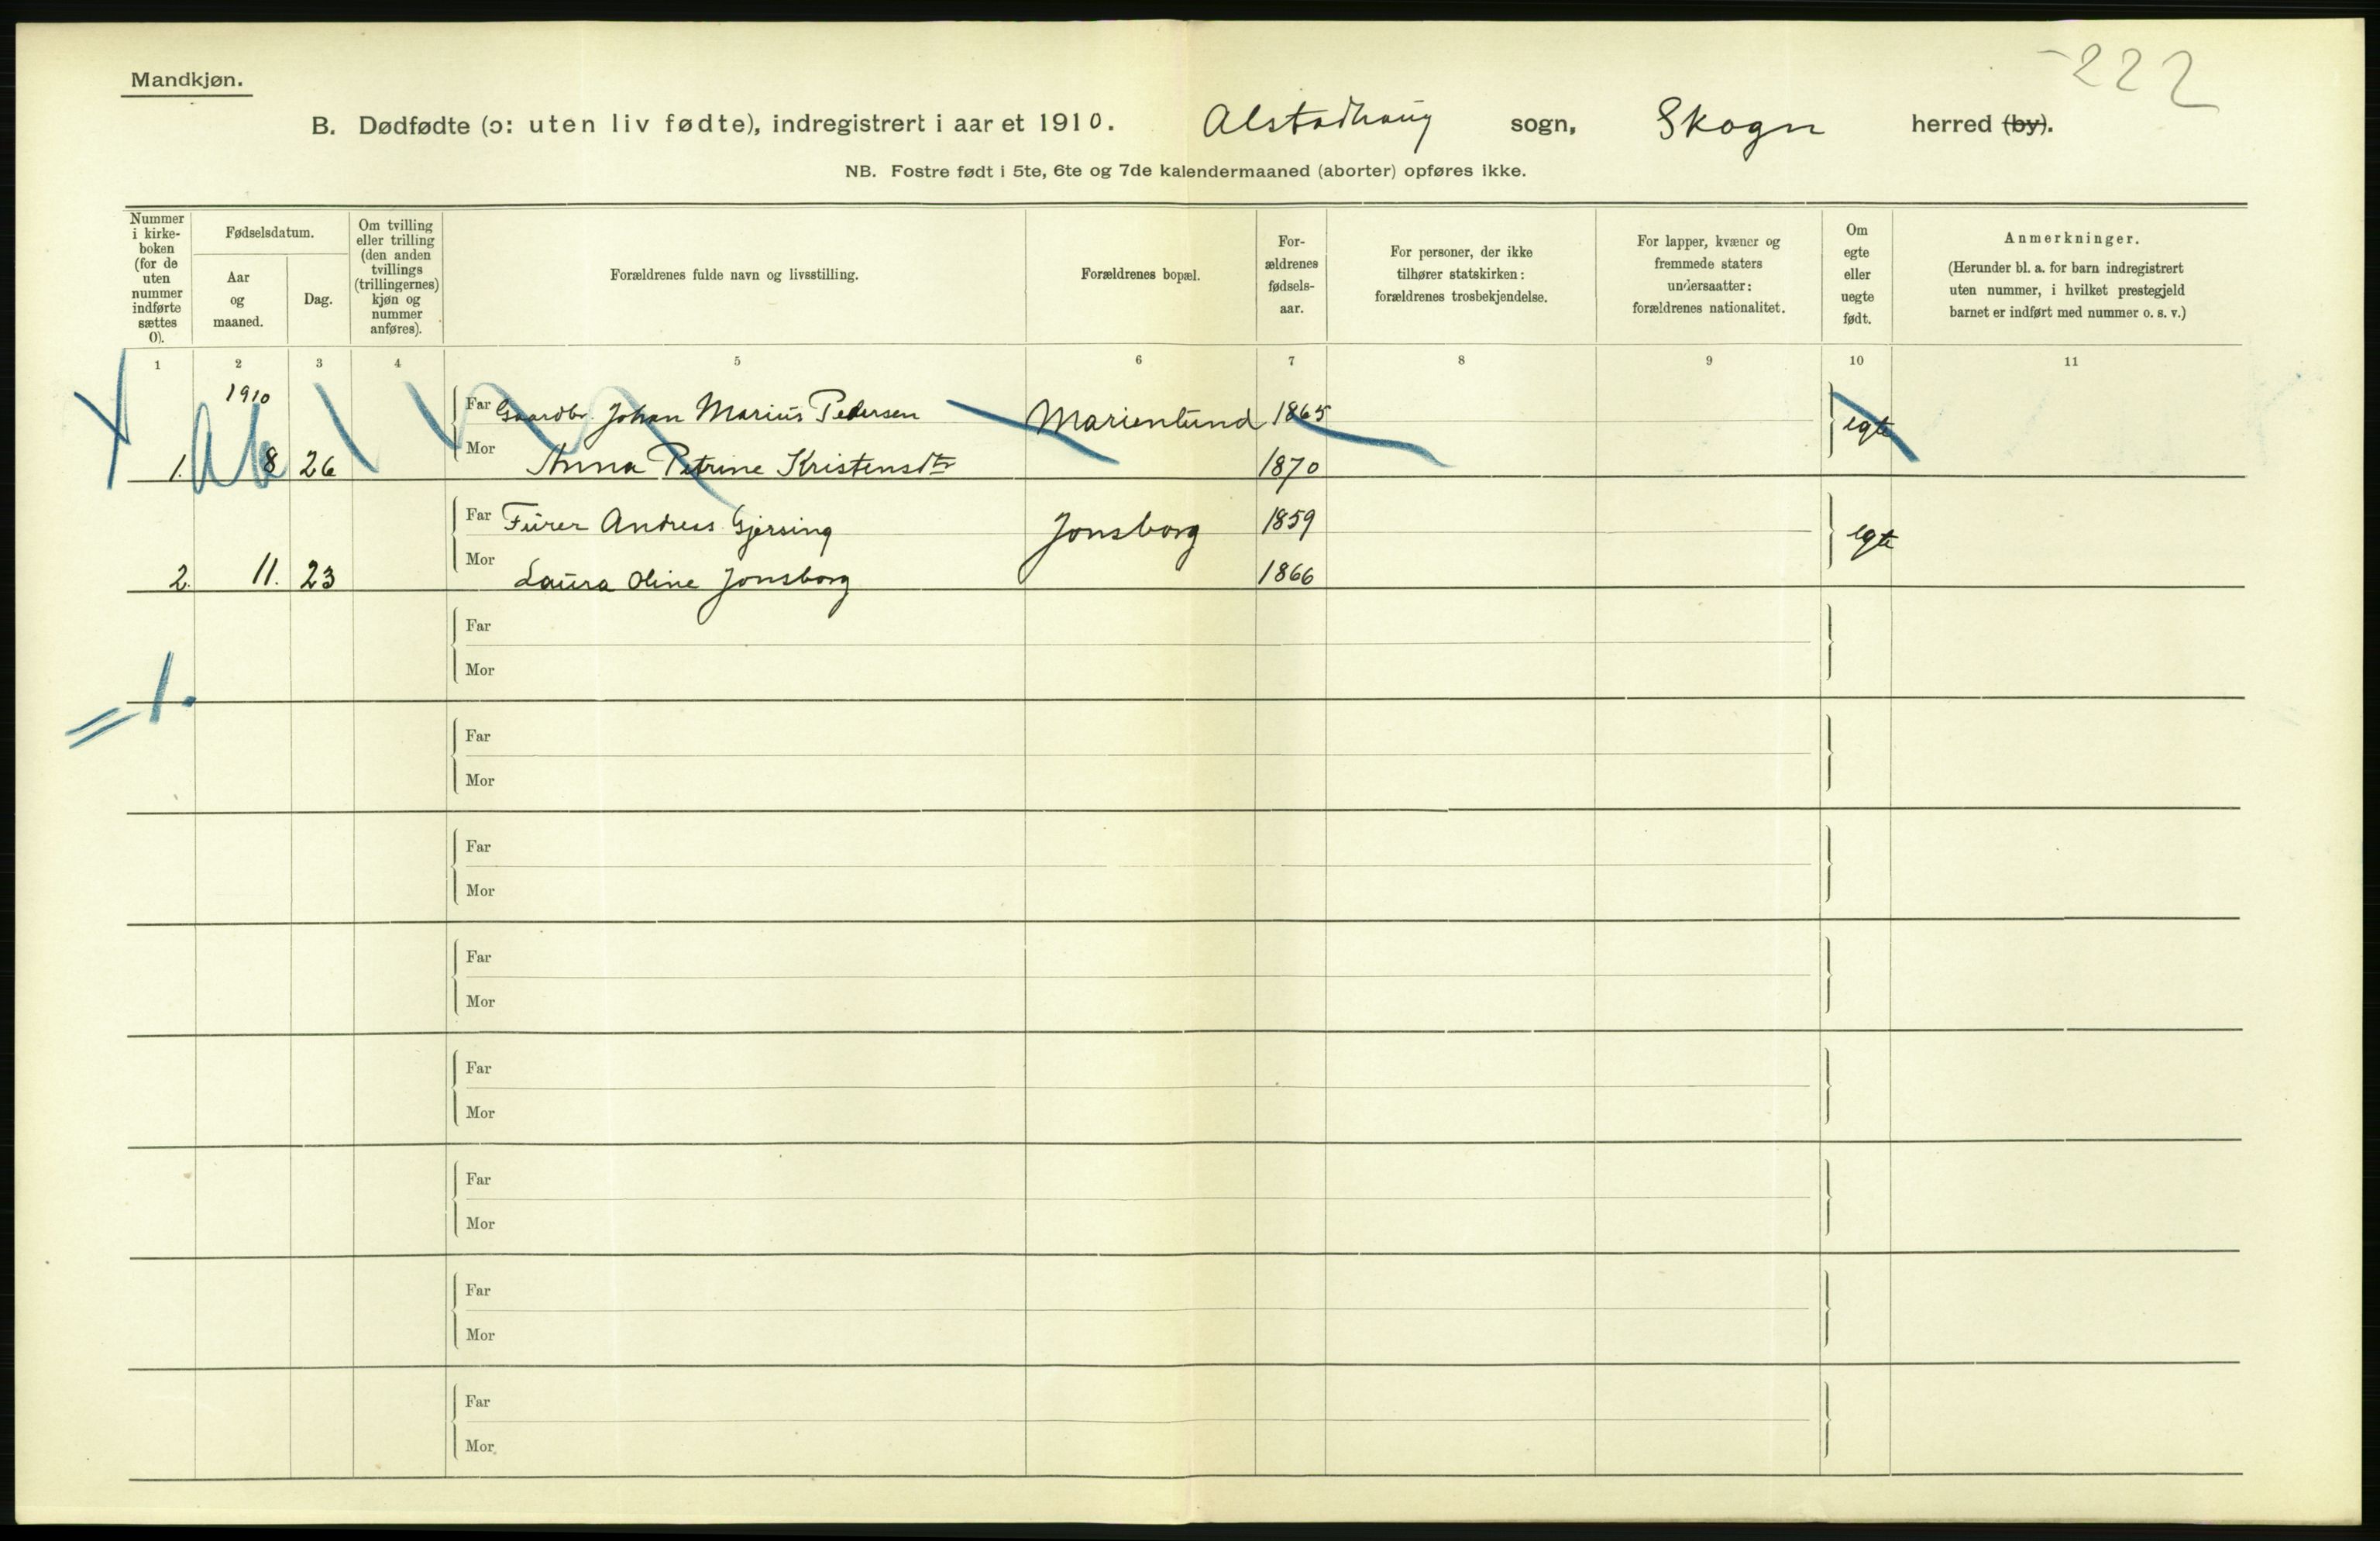 222
Mandkjøn.
B. Dødfødte (ɔ: uten liv fødte), indregistrert i aaret 1910. Alstadhaug sogn, Skogn herred (by).
NB. Fostre født i 5te, 6te og 7de kalendermaaned (aborter) opføres ikke.
Nummer i kirke-boken (for de uten nummer indførte sættes 0).
Fødselsdatum.
Aar og maaned.
Dag.
Om tvilling eller trilling (den anden tvillings (trillingernes) kjøn og nummer anføres).
Forældrenes fulde navn og livsstilling.
Forældrenes bopæl.
For-ældrenes fødsels-aar.
For personer, der ikke tilhører statskirken: forældrenes trosbekjendelse.
For lapper, kvæner og fremmede staters undersaatter: forældrenes nationalitet.
Om egte eller uegte født.
Anmerkninger.
(Herunder bl. a. for barn indregistrert uten nummer, i hvilket prestegjeld barnet er indført med nummer o. s. v.)
1 2 3 4 5 6 7 8 9 10 11
1910
Far Gaardbr. Johan Marius Pedersen Marienlund 1865 egte
1. 8 26 Mor Anna Petrine Kristensdtr 1870
Far Furer Andreas Gjersing Jonsborg 1859 egte
2. 11. 23 Mor Laura Oline Jonsborg 1866
Far
Mor
= 1.
Far
Mor
Far
Mor
Far
Mor
Far
Mor
Far
Mor
Far
Mor
Far
Mor